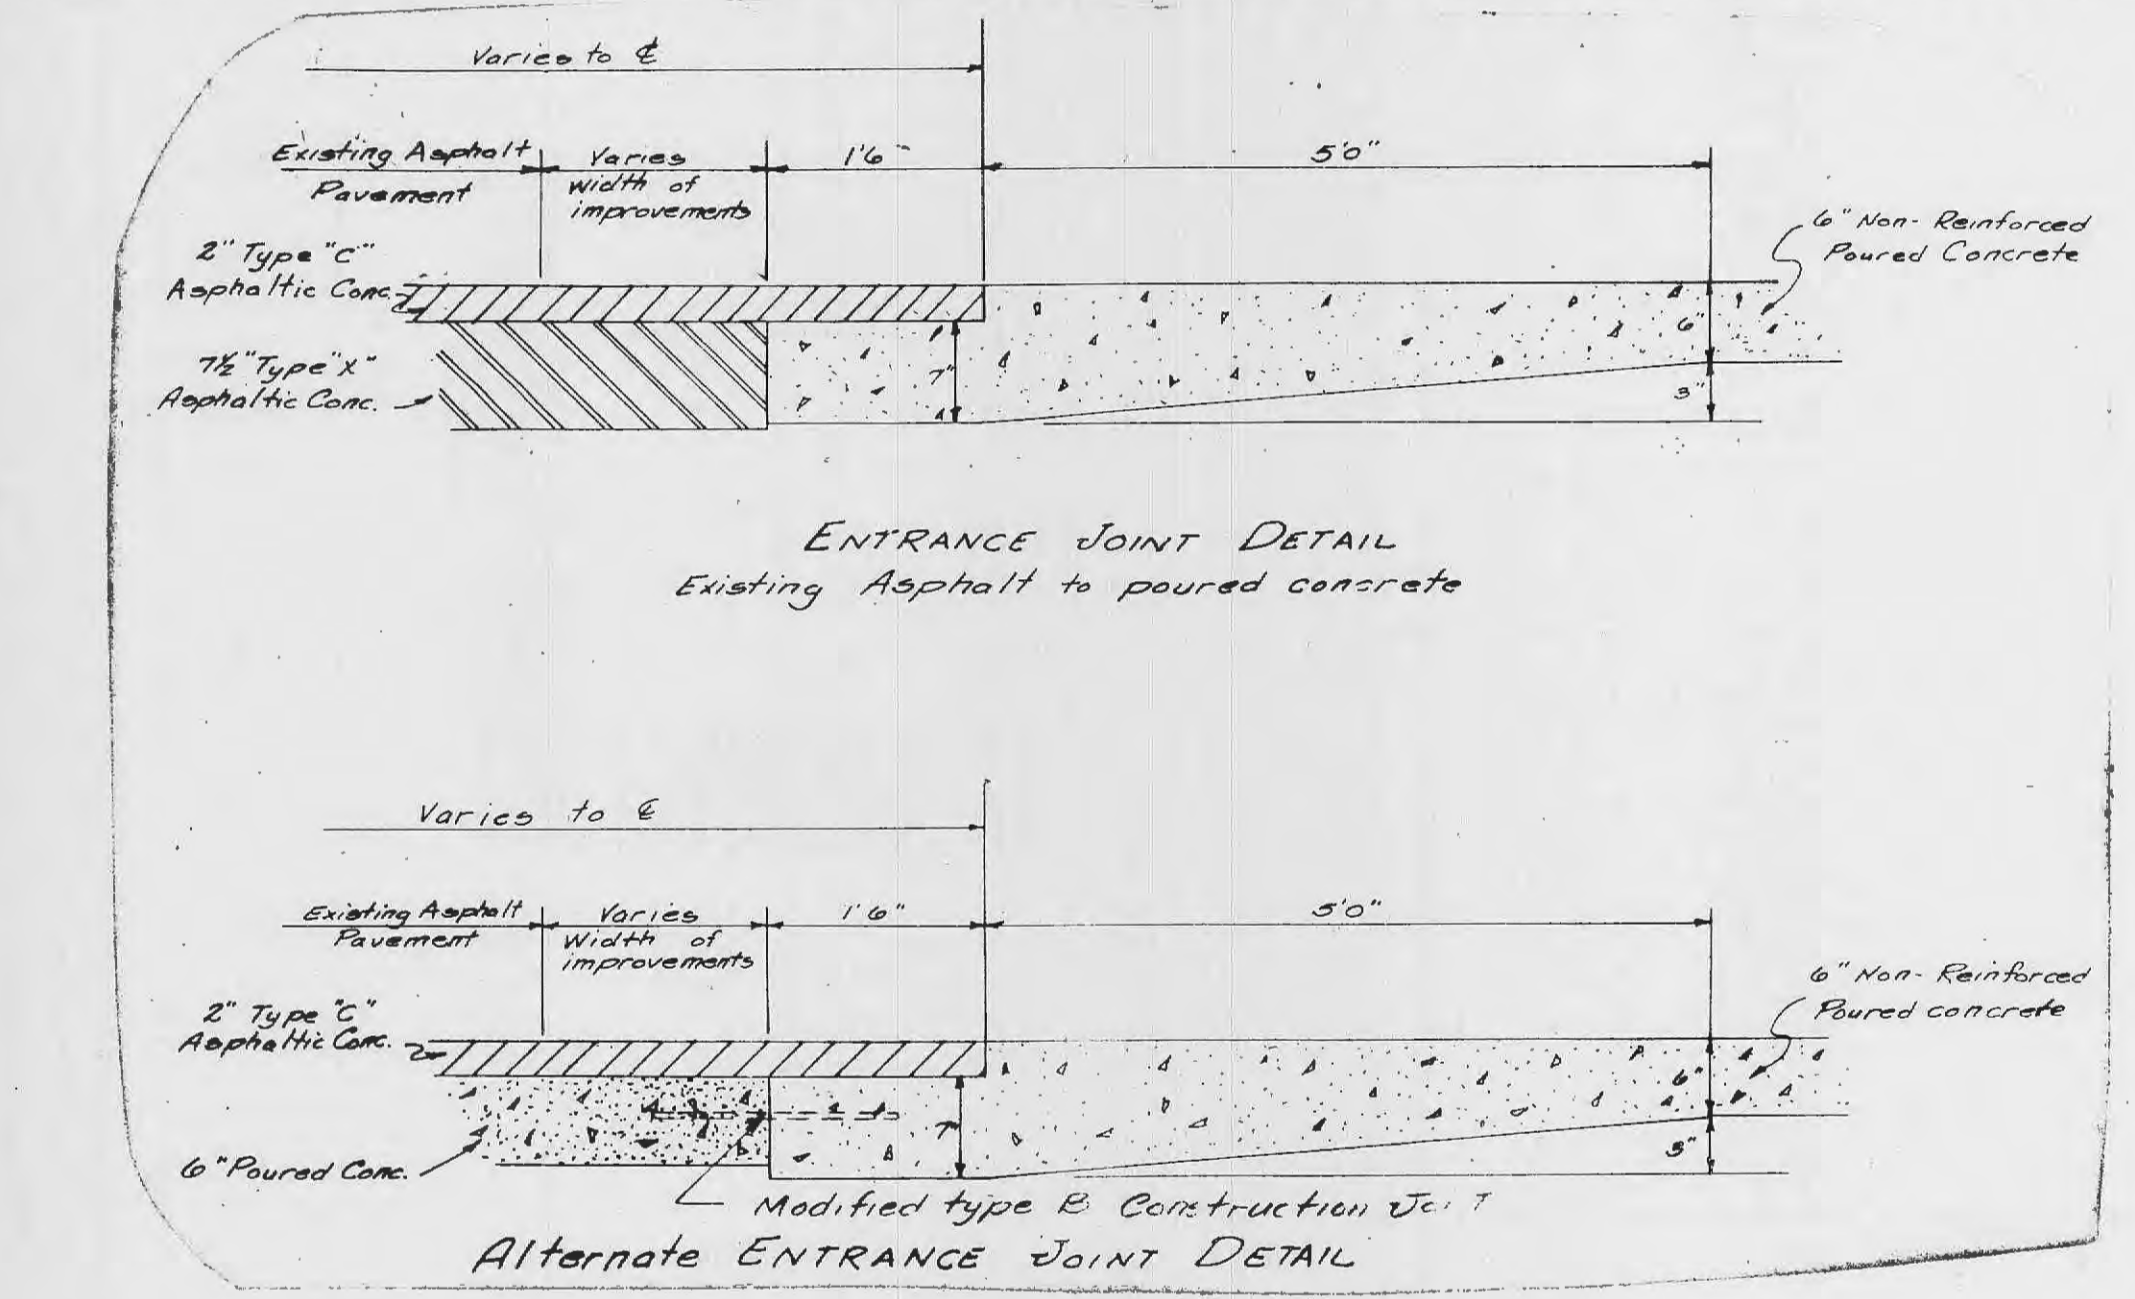 Varies to ℄
Existing Asphalt
Pavement
Varies
Width of
improvements
1'6"
5'0"
6" Non-Reinforced
Poured Concrete
2" Type "C"
Asphaltic Conc.
7½" Type "X"
Asphaltic Conc.
7"
6"
3"
ENTRANCE JOINT DETAIL
Existing Asphalt to poured concrete
Varies to ℄
Existing Asphalt
Pavement
Varies
Width of
improvements
1'6"
5'0"
6" Non-Reinforced
Poured concrete
2" Type "C"
Asphaltic Conc.
6" Poured Conc.
7"
6"
3"
Modified type B Construction Joint
Alternate ENTRANCE JOINT DETAIL